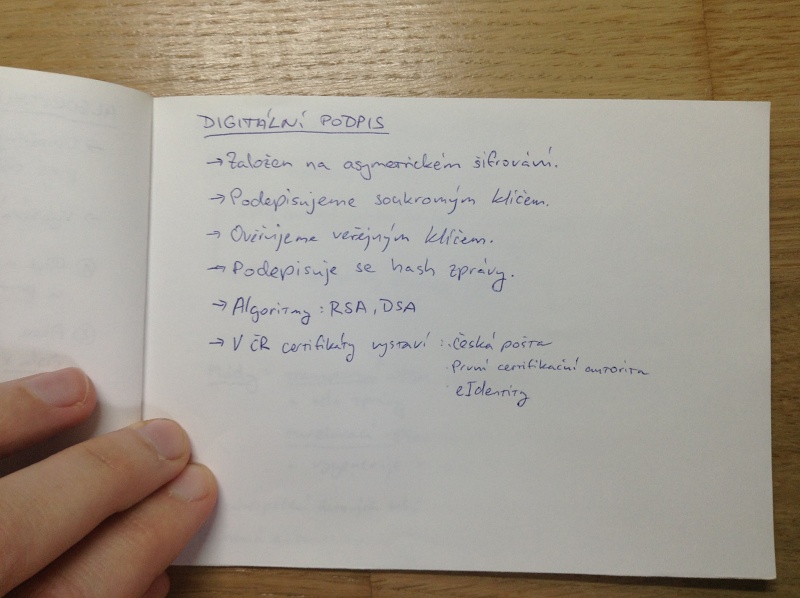 DIGITÁLNÍ PODPIS
→ Založen na asymetrickém šifrování.
→ Podepisujeme soukromým klíčem.
→ Ověřujeme veřejným klíčem.
→ Podepisuje se hash zprávy.
→ Algoritmy: RSA, DSA
→ V ČR certifikáty vystaví: · Česká pošta
· První certifikační autorita
· eIdentity